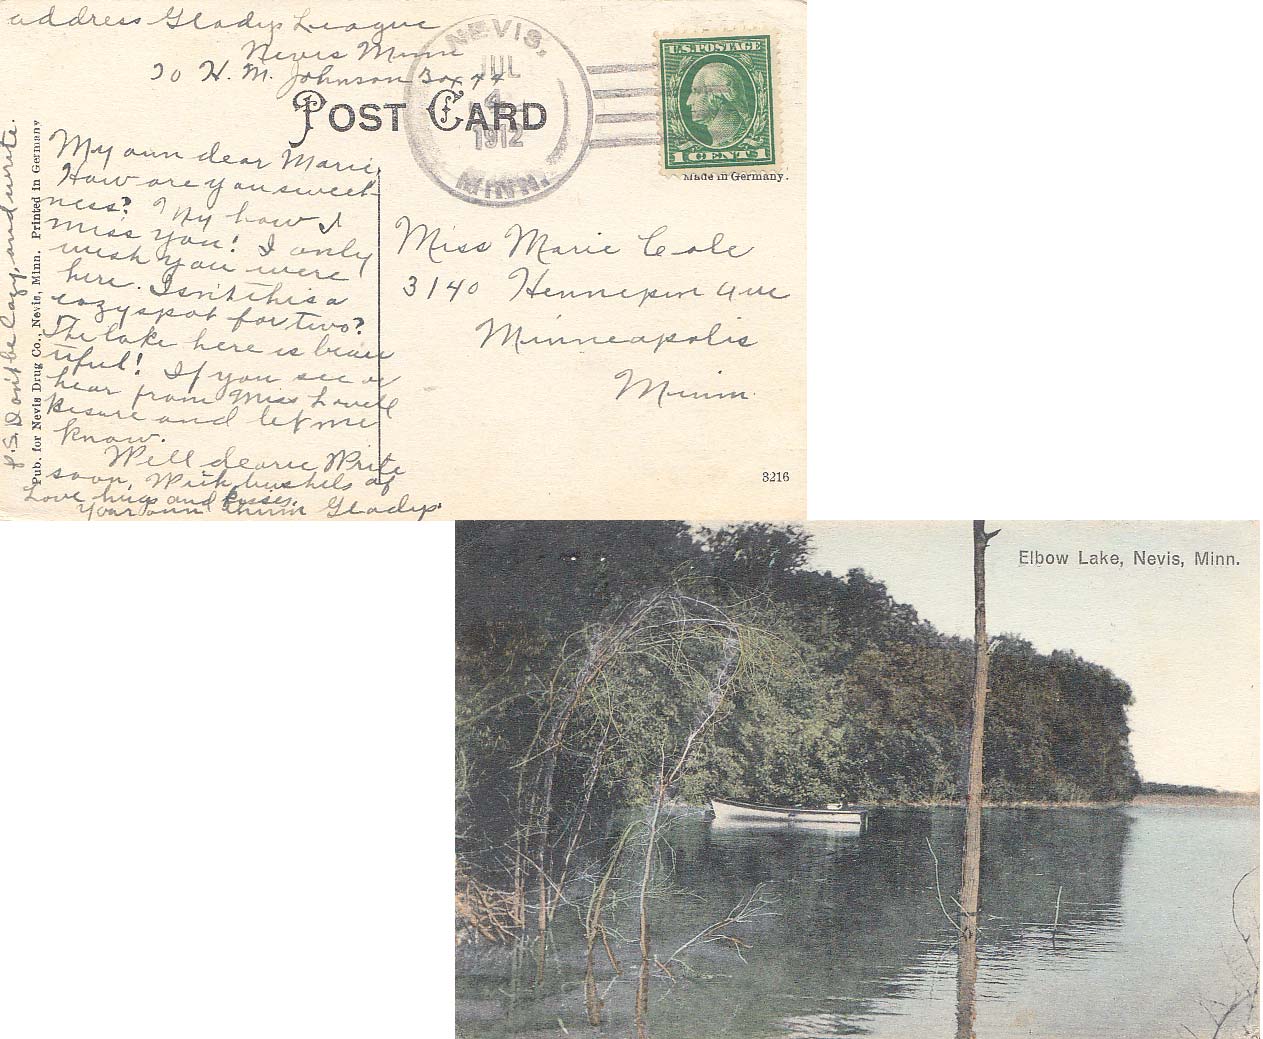 address Gladys League
Nevis Minn
% H. M. Johnson Box 44
POST CARD
NEVIS,
JUL
4
1912
MINN.
U.S. POSTAGE
1 CENT 1
Made in Germany.
My own dear Marie,
How are you sweet-
ness? My how I
miss you! I only
wish you were
here. Isn't this a
cozy spot for two?
The lake here is beau
tiful! If you see or
hear from Miss Lovell
be sure and let me
know.
Well dearie Write
soon, With bushels of
Love hugs and kisses.
Your own Gladys.
P.S. Don't be lazy, and write.
Pub. for Nevis Drug Co., Nevis, Minn. Printed in Germany
Miss Marie Cole
3140 Hennepin Ave
Minneapolis
Minn.
3216
Elbow Lake, Nevis, Minn.